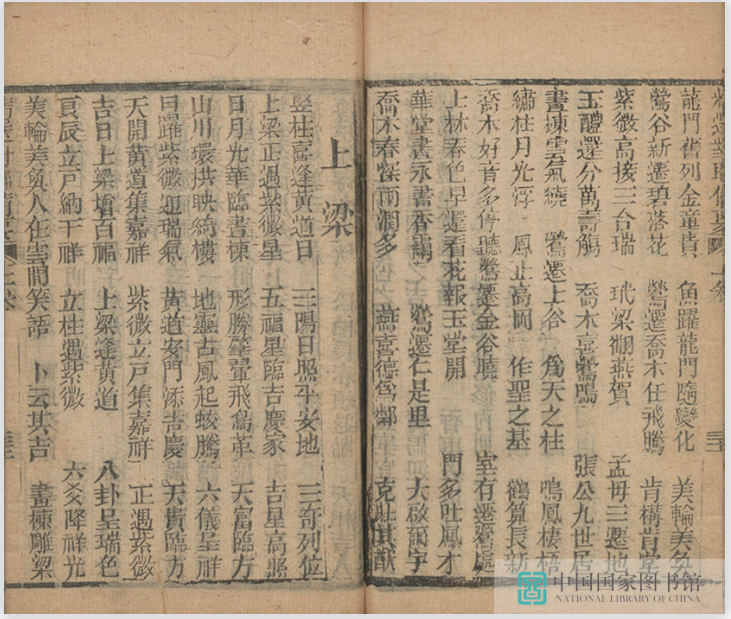 龍門舊列金童貴 魚躍龍門隨變化 美輪美奐
鶯谷新遷碧落花 鶯遷喬木任飛騰 肯構肯堂
紫微高接三台瑞 玳梁翩燕賀 孟母三遷地
玉醴還分萬壽觴 喬木喜鶯鳴 張公九世居
畫棟雲氣繞 鶯遷上谷 為天之柱 鳴鳳棲梧
繡柱月光浮 鳳止高岡 作聖之基 鶴算長新
喬木好音多停聽鶯遷金谷曉 室有遷鶯處
上林春色早還看花報玉堂開 門多吐鳳才
華堂晝永書香藹 鶯遷仁是里 大啟爾宇
喬木春深雨潤多 燕喜德為鄰 克壯其猷
上梁
豎柱喜逢黃道日 三陽日照平安地 三奇列位
上梁正遇紫微星 五福星臨吉慶家 吉星高照
日月光華臨畫棟 形勝翬飛鳥革 天富臨方
山川環拱映綺樓 地靈古鳳起蛟騰 六儀呈祥
日躍紫微迎瑞氣 黃道安門添吉慶 天貴臨方
天開黃道集嘉祥 紫微立戶集嘉祥 正遇紫微
吉日上梁增百福 上梁逢黃道 八卦呈瑞色
良辰立戶納千祥 立柱遇紫微 六爻降祥光
美輪美奐人在雲間笑語 卜云其吉 畫棟雕梁
中国国家图书馆
NATIONAL LIBRARY OF CHINA